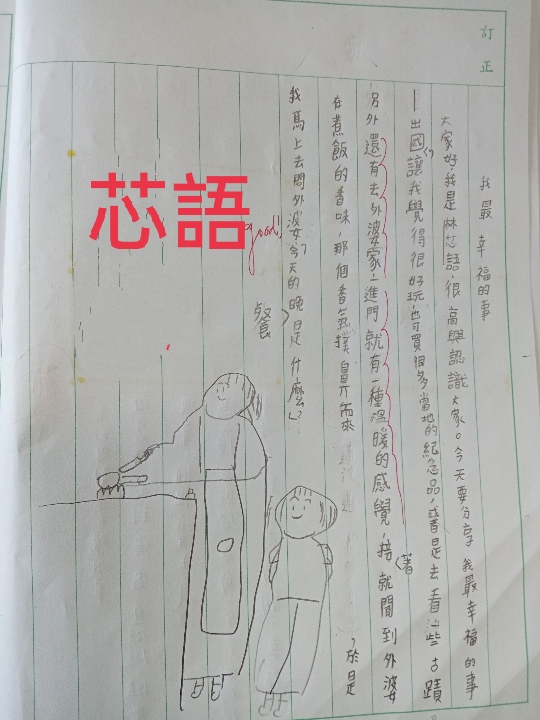 訂正
我最幸福的事
大家好,我是林芯語,很高興認識大家。今天要分享我最幸福的事
—出國讓我覺得很好玩,也可買很多當地的紀念品,或者是去看一些古蹟
另外還有去外婆家,一進門就有一種溫暖的感覺,接著就聞到外婆
在煮飯的香味,那個香氣撲鼻而來,於是
我馬上去問外婆:「今天的晚餐是什麼?」
good!
芯語